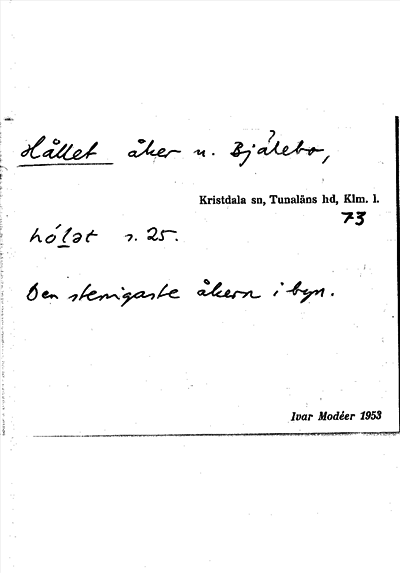 Hållet åker u. Bjälebo,
Kristdala sn, Tunaläns hd, Klm. l.
73
hó̲lət s. 25.
Den stenigaste åkern i byn.
Ivar Modéer 1953